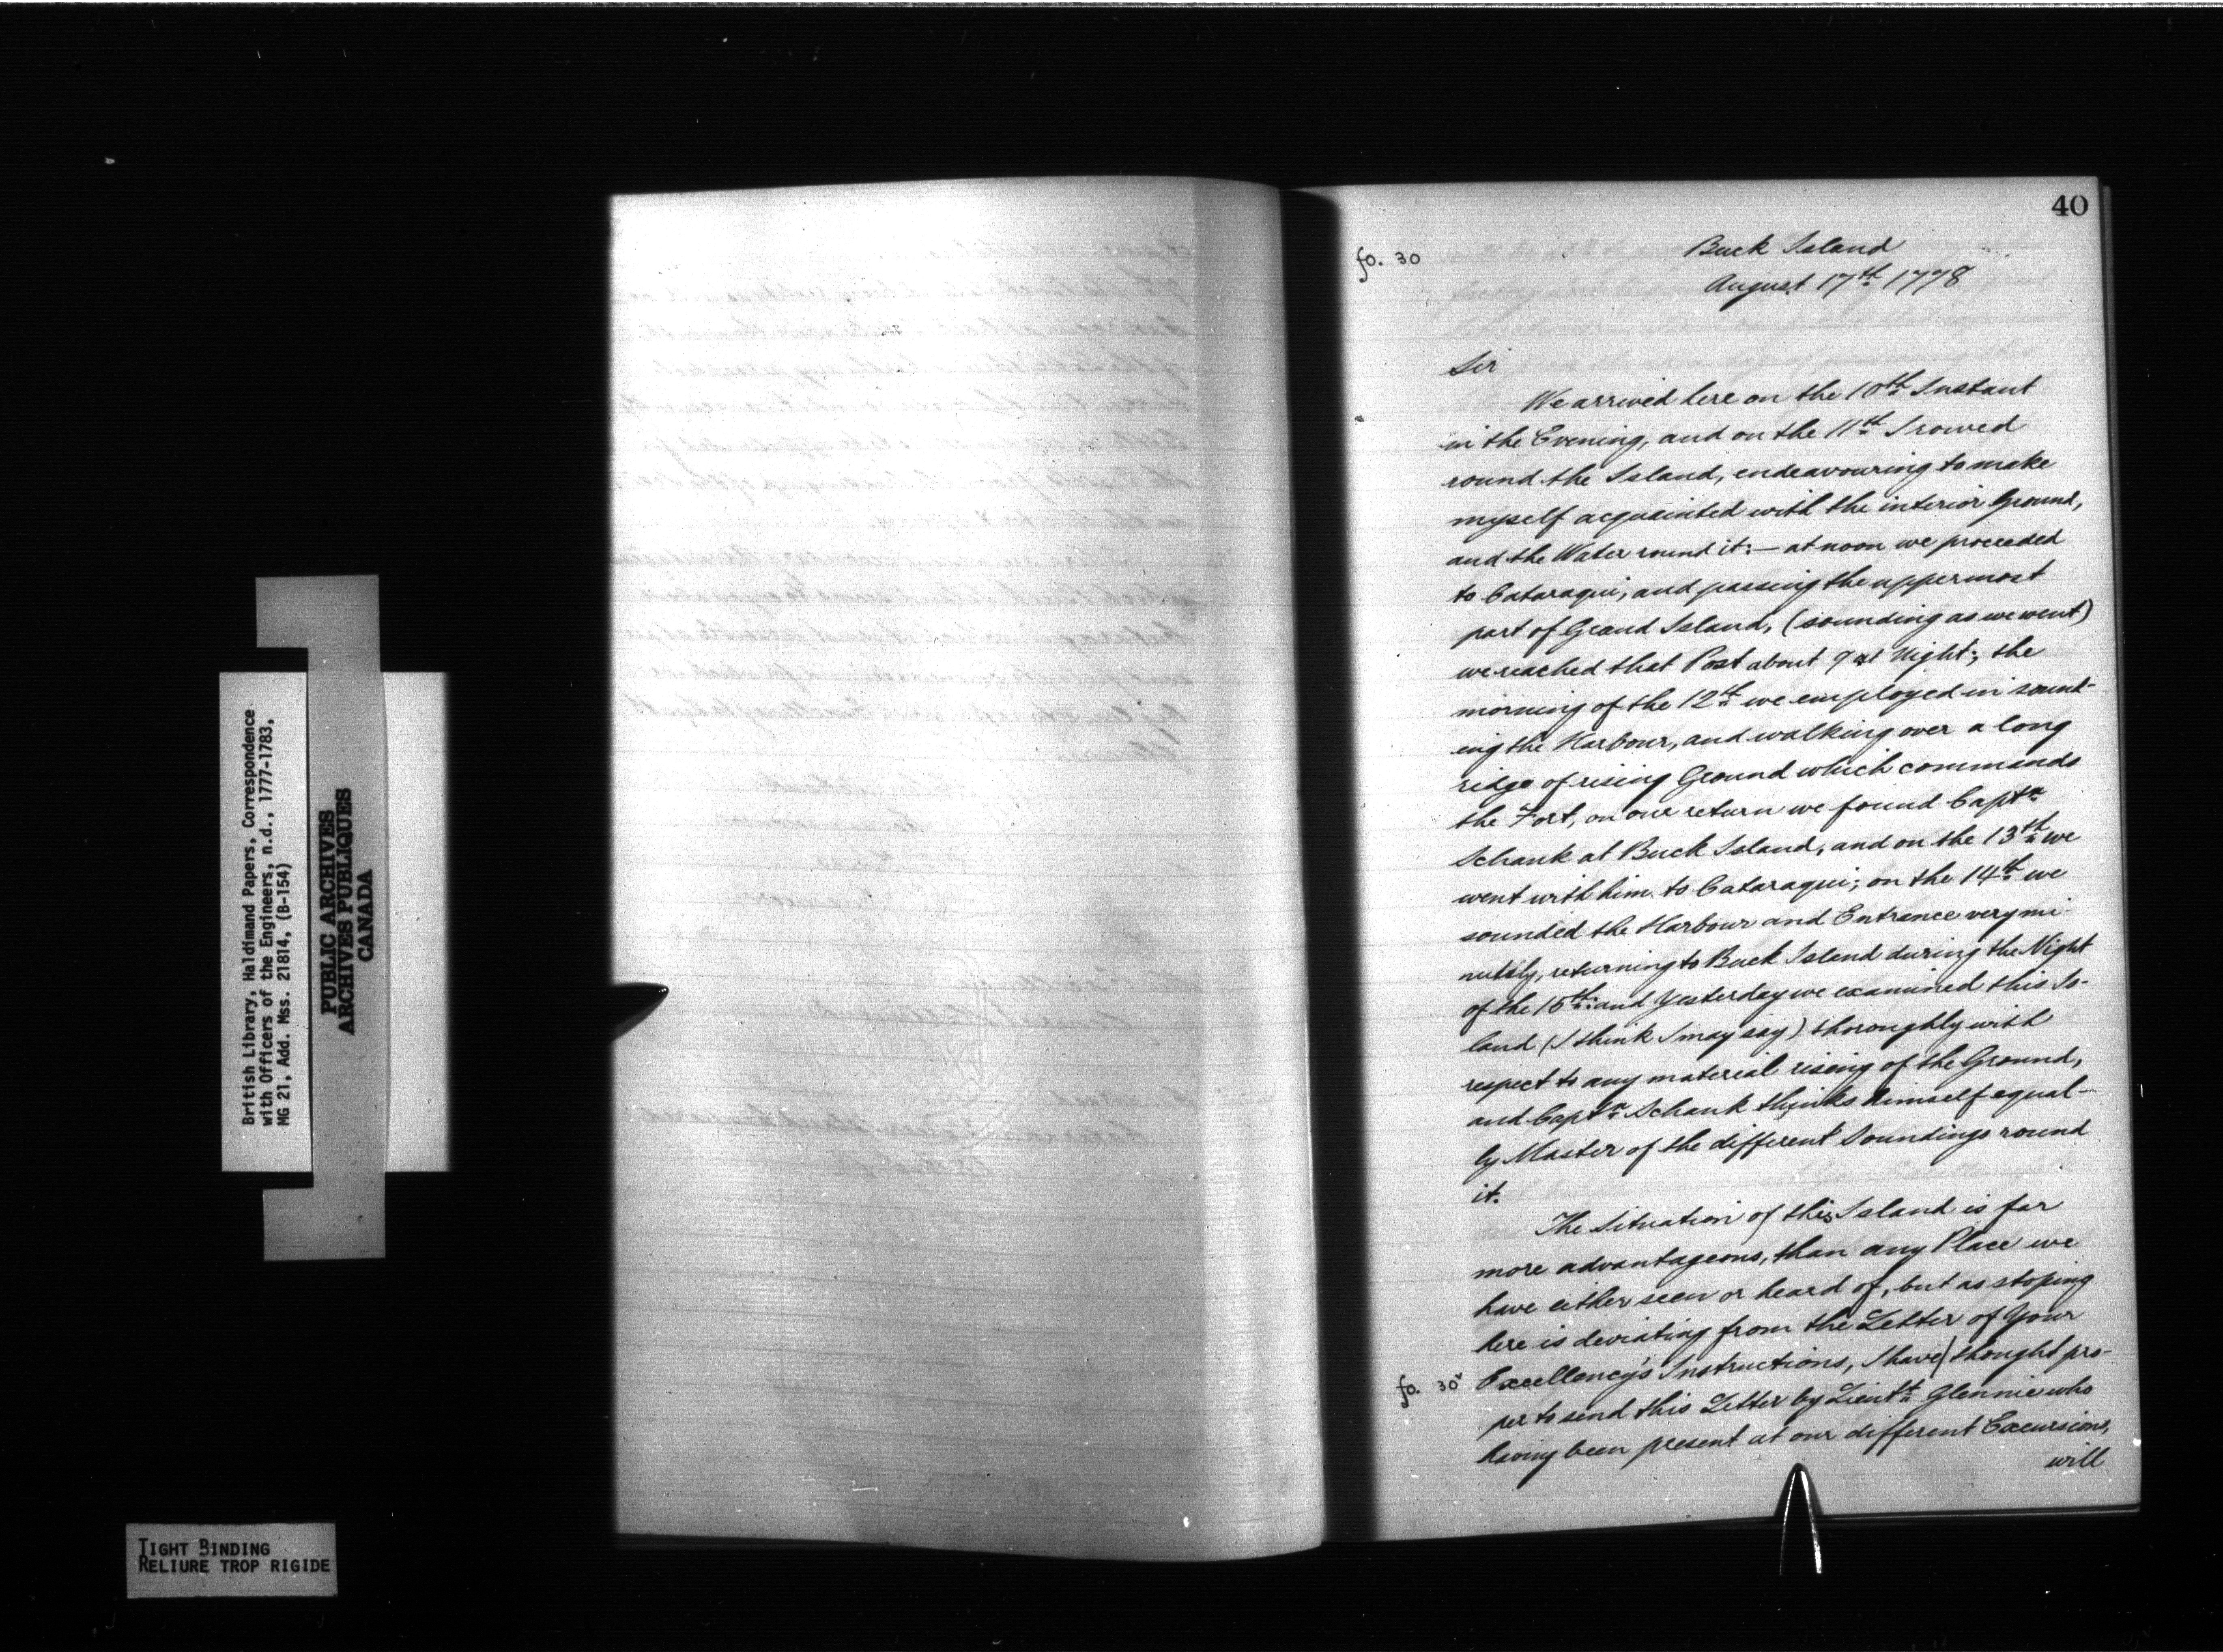 British Library, Haldimand Papers, Correspondence
with Officers of the Engineers, n.d., 1777-1783,
MG 21, Add. Mss. 21814, (B-154)
PUBLIC ARCHIVES
ARCHIVES PUBLIQUES
CANADA
TIGHT BINDING
RELIURE TROP RIGIDE
40
fo. 30
Buck Island
August 17th 1778
Sir
We arrived here on the 10th Instant
in the Evening, and on the 11th I rowed
round the Island, endeavouring to make
myself acquainted with the interior Ground,
and the Water round it:— at noon we proceeded
to Cataraqui, and passing the uppermost
part of Grand Island, (sounding as we went)
we reached that Post about 9 at Night; the
morning of the 12th we employed in sound-
ing the Harbour, and walking over a long
ridge of rising Ground which commands
the Fort, on our return we found Captn
Schank at Buck Island, and on the 13th we
went with him to Cataraqui; on the 14th we
sounded the Harbour and Entrance very mi-
nutely, returning to Buck Island during the Night
of the 15th: and Yesterday we examined this Is-
land (I think I may say) thoroughly with
respect to any material rising of the Ground,
and Captn Schank thinks himself equal-
ly Master of the different Soundings round
it.
The Situation of this Island is far
more advantageous, than any Place we
have either seen or heard of, but as stoping
here is deviating from the Letter of Your
Excellency's Instructions, I have/ thought pro-
fo. 30v
per to send this Letter by Lieutt Glennie who
having been present at our different Excursions,
will